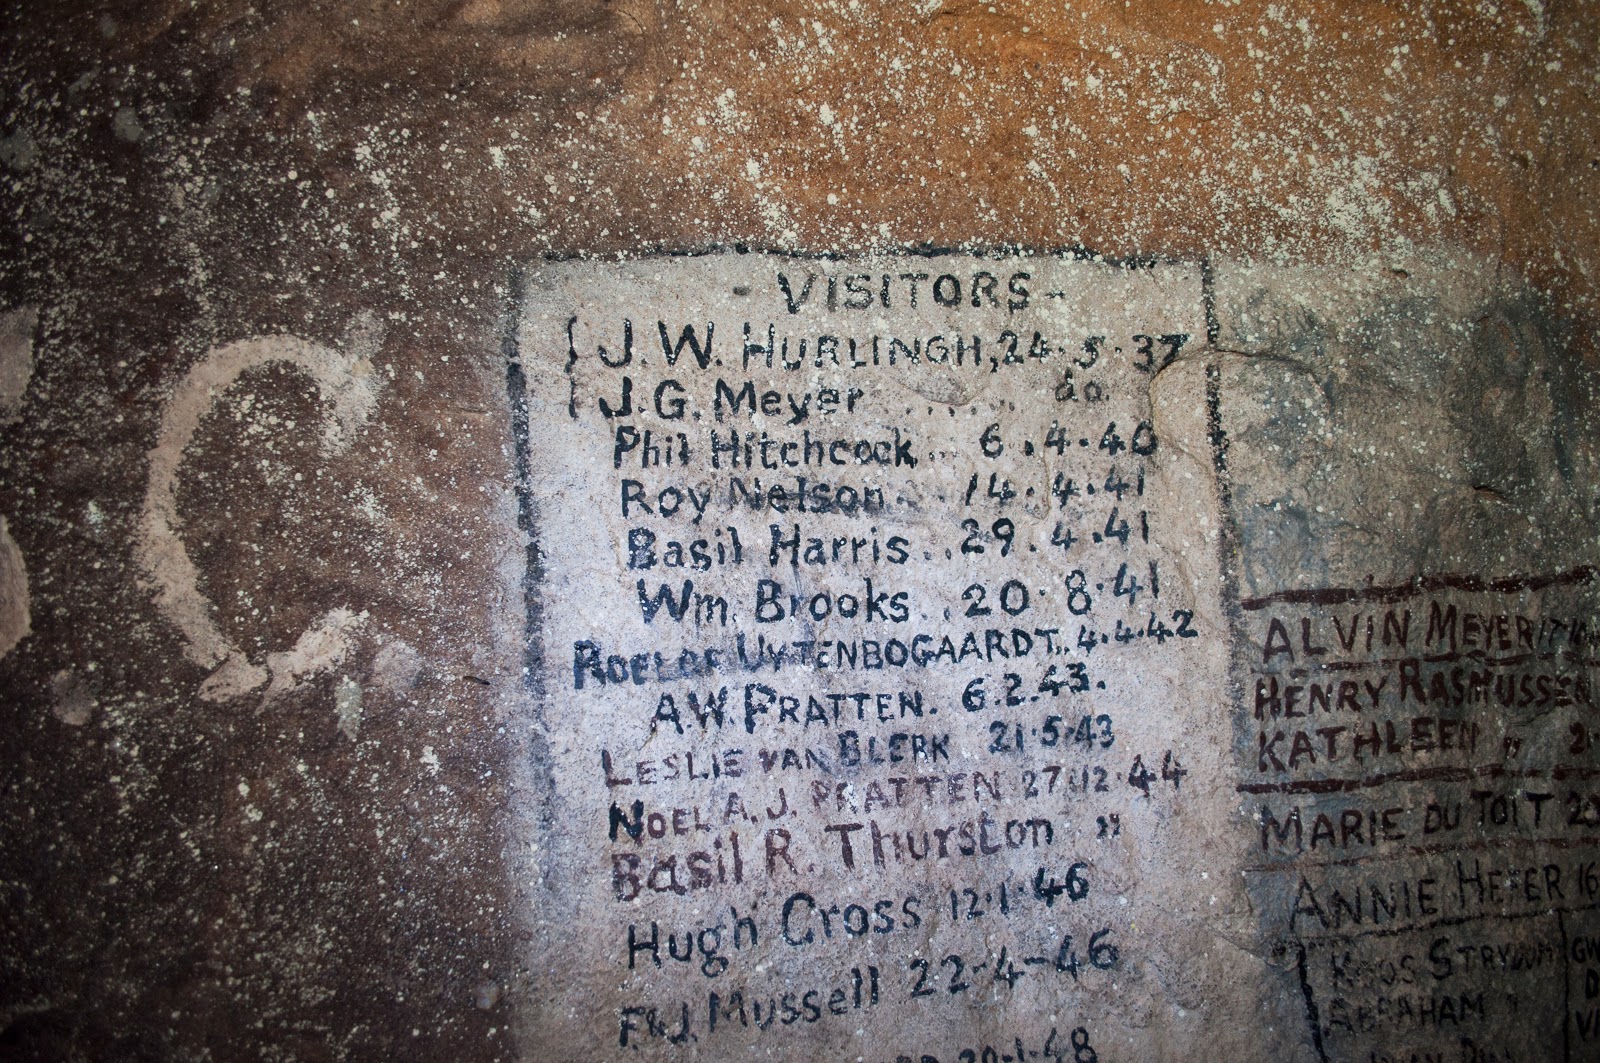 C.
- VISITORS -
J. W. HURLINGH, 24.5.37
J. G. Meyer ...... do.
Phil Hitchcock... 6.4.40
Roy Nelson.. 14.4.41
Basil Harris.. 29.4.41
Wm. Brooks.. 20.8.41
ROELOF UYTENBOGAARDT.. 4.4.42
A.W. PRATTEN. 6.2.43.
LESLIE VAN BLERK 21.5.43
NOEL A. J. PRATTEN 27.12.44
Basil R. Thurston "
Hugh Cross 12.1.46
F.&J. Mussell 22-4-46
20.1.48
ALVIN MEYER
HENRY RASMUSSEN
KATHLEEN "
MARIE DU TOIT
ANNIE HEFER 16
KOOS STRYDOM
ABRAHAM "